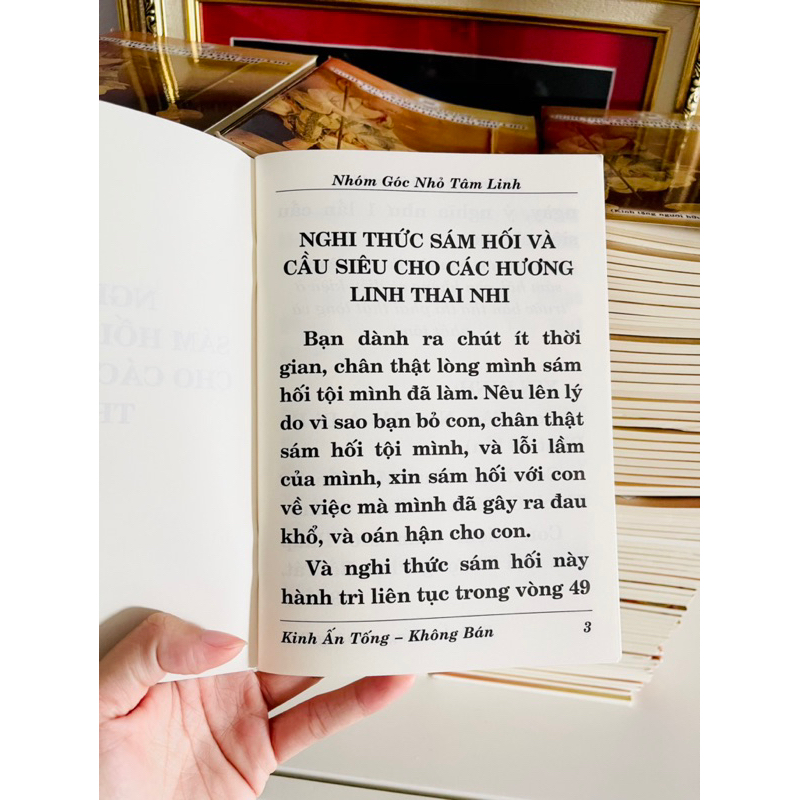 Nhóm Góc Nhỏ Tâm Linh
NGHI THỨC SÁM HỐI VÀ
CẦU SIÊU CHO CÁC HƯƠNG
LINH THAI NHI
Bạn dành ra chút ít thời
gian, chân thật lòng mình sám
hối tội mình đã làm. Nêu lên lý
do vì sao bạn bỏ con, chân thật
sám hối tội mình, và lỗi lầm
của mình, xin sám hối với con
về việc mà mình đã gây ra đau
khổ, và oán hận cho con.
Và nghi thức sám hối này
hành trì liên tục trong vòng 49
Kinh Ấn Tống – Không Bán 3